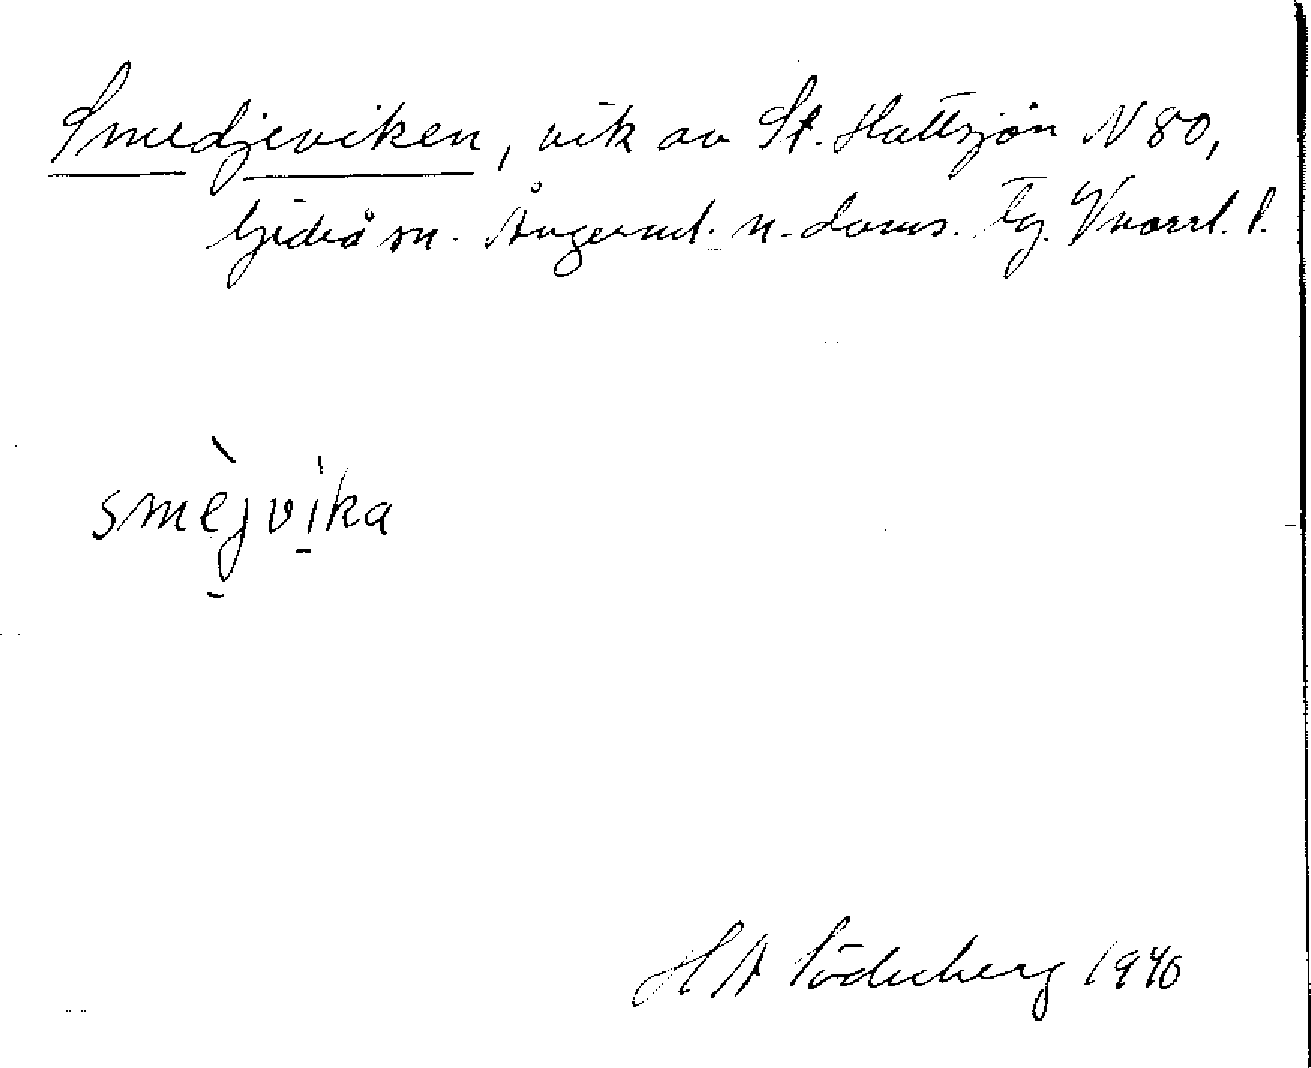 Smedjeviken, vik av St. Hattsjön N 80,
Gideå sn. Ångerml. n. doms. Tg. Vnorrl. l.
smèjvika
H A Söderberg 1940